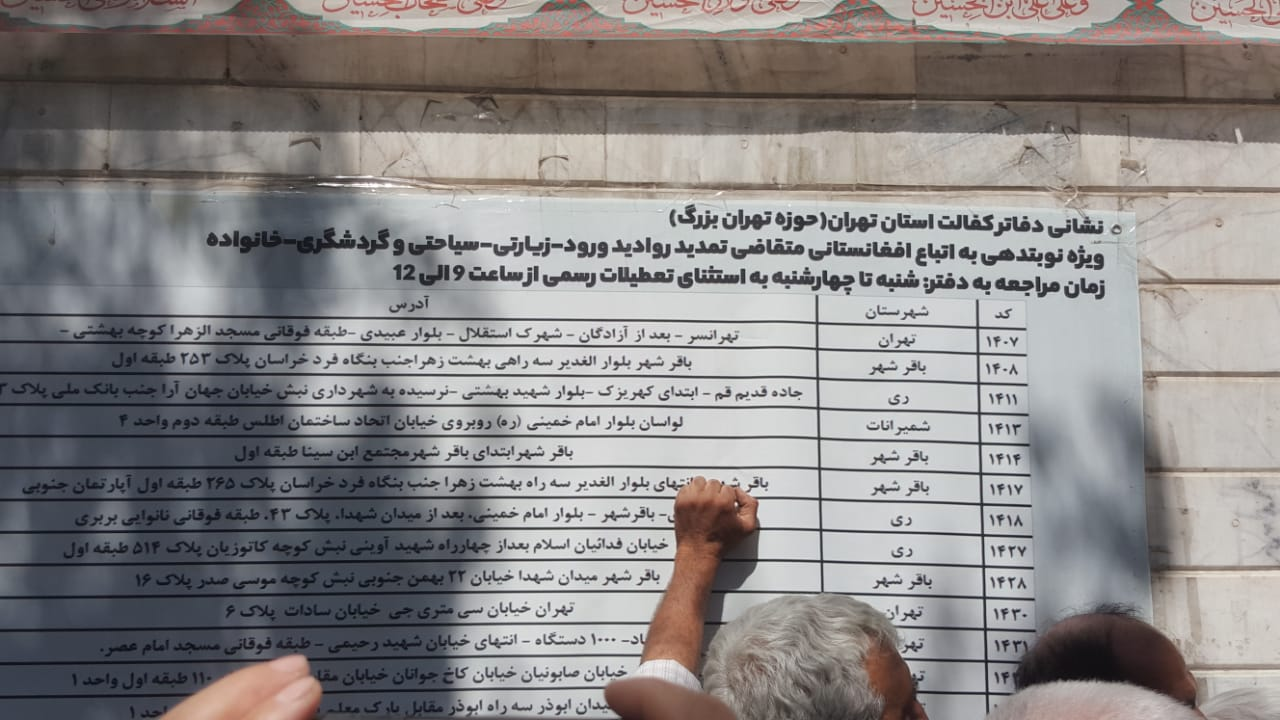 وعلی علی ابن الحسین
نشانی دفاتر کفالت استان تهران(حوزه تهران بزرگ)
ویژه نوبتدهی به اتباع افغانستانی متقاضی تمدید روادید ورود-زیارتی-سیاحتی و گردشگری-خانواده
زمان مراجعه به دفتر: شنبه تا چهارشنبه به استثنای تعطیلات رسمی از ساعت 9 الی 12
کد شهرستان آدرس
۱۴۰۷ تهران تهرانسر - بعد از آزادگان - شهرک استقلال - بلوار عبیدی -طبقه فوقانی مسجد الزهرا کوچه بهشتی -
۱۴۰۸ باقر شهر باقر شهر بلوار الغدیر سه راهی بهشت زهراجنب بنگاه فرد خراسان پلاک ۲۵۳ طبقه اول
۱۴۱۱ ری جاده قدیم قم - ابتدای کهریزک -بلوار شهید بهشتی -نرسیده به شهرداری نبش خیابان جهان آرا جنب بانک ملی پلاک
۱۴۱۳ شمیرانات لواسان بلوار امام خمینی (ره) روبروی خیابان اتحاد ساختمان اطلس طبقه دوم واحد ۴
۱۴۱۴ باقر شهر باقر شهرابتدای باقر شهرمجتمع ابن سینا طبقه اول
۱۴۱۷ باقر شهر باقر انتهای بلوار الغدیر سه راه بهشت زهرا جنب بنگاه فرد خراسان پلاک ۲۶۵ طبقه اول آپارتمان جنوبی
۱۴۱۸ ری - باقرشهر - بلوار امام خمینی. بعد از میدان شهدا. پلاک ۴۳. طبقه فوقانی نانوایی بربری
۱۴۲۷ ری خیابان فدائیان اسلام بعداز چهارراه شهید آوینی نبش کوچه کاتوزیان پلاک ۵۱۴ طبقه اول
۱۴۲۸ باقر شهر باقر شهر میدان شهدا خیابان ۲۲ بهمن جنوبی نبش کوچه موسی صدر پلاک ۱۶
۱۴۳۰ تهران تهران خیابان سی متری جی خیابان سادات پلاک ۶
۱۴۳۱ ۱۰۰۰ دستگاه - انتهای خیابان شهید رحیمی - طبقه فوقانی مسجد امام عصر.
خیابان صابونیان خیابان کاخ جوانان خیابان ۱۱۰ طبقه اول واحد ۱
میدان ابوذر سه راه ابوذر مقابل پارک واحد ۱